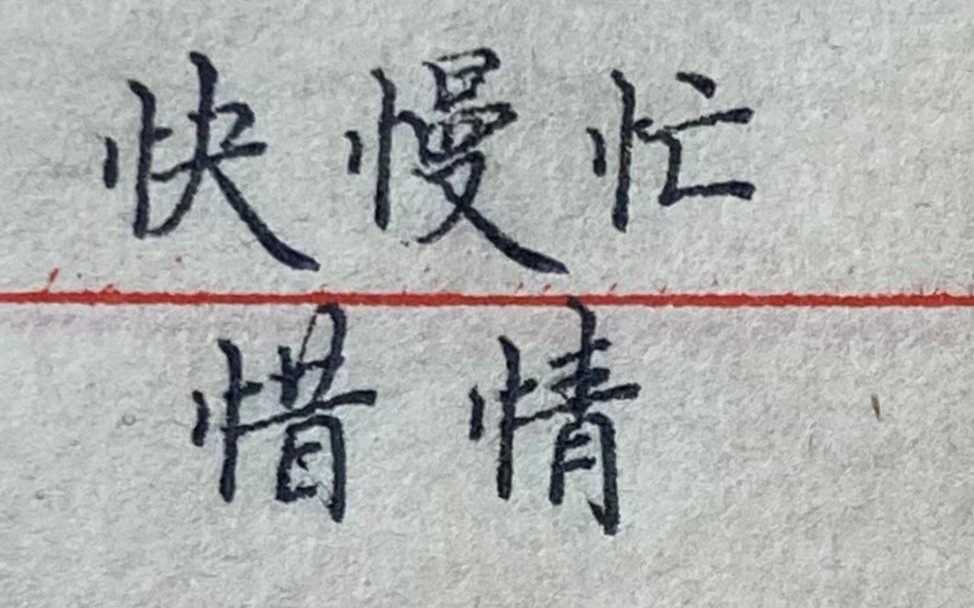 快慢忙
惜情